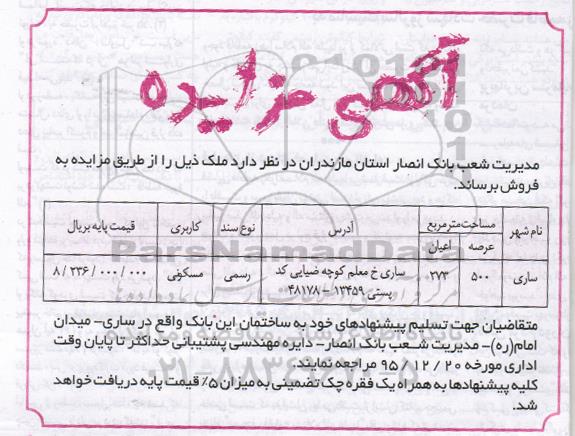 آگهی مزایده
مدیریت شعب بانک انصار استان مازندران در نظر دارد ملک ذیل را از طریق مزایده به
فروش برساند.
نام شهر | مساحت مترمربع | آدرس | نوع سند | کاربری | قیمت پایه بریال
عرصه | اعیان
ساری | ۵۰۰ | ۲۷۳ | ساری خ معلم کوچه ضیایی کد | رسمی | مسکونی | ۸/۲۳۶/۰۰۰/۰۰۰
پستی ۱۳۴۵۹ – ۴۸۱۷۸
متقاضیان جهت تسلیم پیشنهادهای خود به ساختمان این بانک واقع در ساری- میدان
امام(ره)- مدیریت شعب بانک انصار- دایره مهندسی پشتیبانی حداکثر تا پایان وقت
اداری مورخه ۹۵/۱۲/۲۰ مراجعه نمایند.
کلیه پیشنهادها به همراه یک فقره چک تضمینی به میزان ۵٪ قیمت پایه دریافت خواهد
شد.
ParsNamadData